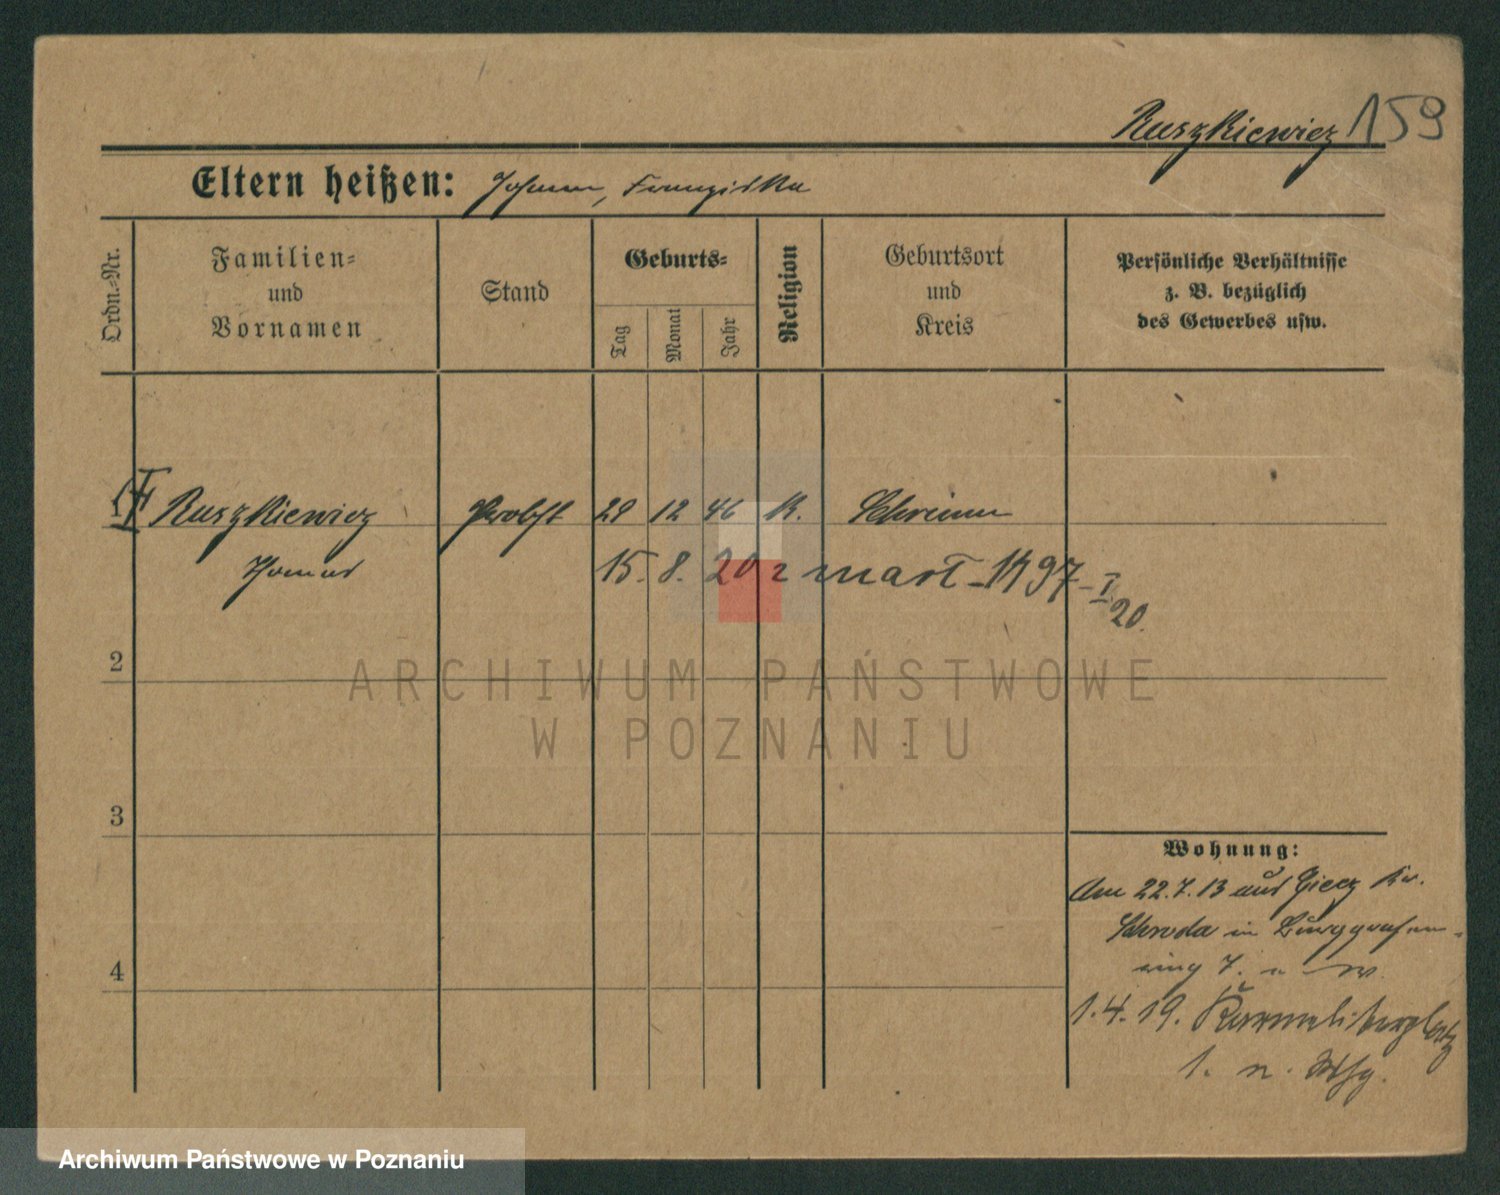 Ruszkiewicz 159
Eltern heißen: Johann, Franziska
Ordn.-Nr.
Familien-
und
Vornamen
Stand
Geburts-
Tag
Monat
Jahr
Religion
Geburtsort
und
Kreis
Persönliche Verhältnisse
z. B. bezüglich
des Gewerbes usw.
Ruszkiewicz Probst 29 12 46 K. Schrimm
Thomas 15. 8. 20 zmarł - 1897 - I
20.
2
ARCHIWUM PAŃSTWOWE
W POZNANIU
3
Wohnung:
Am 22.7.13 aus Giecz Kr.
Schroda in Burggrafen-
ring 7.
4
1.4.19. Karmeliterplatz
1.
Archiwum Państwowe w Poznaniu